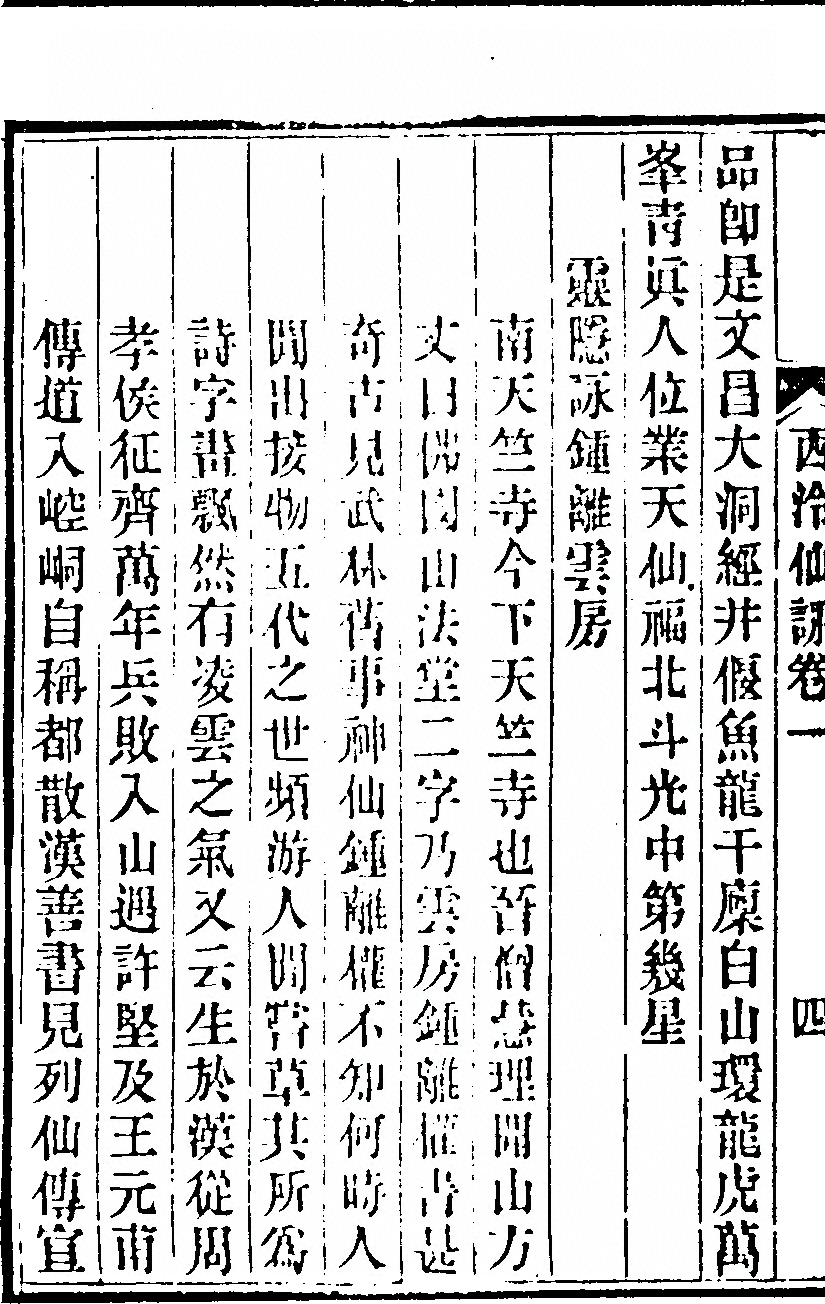 西泠仙詠卷一　四
品卽是文昌大洞經井偃魚龍干廩白山環龍虎萬
峯青眞人位業天仙福北斗光中第幾星
靈隱詠鍾離雲房
南天竺寺今下天竺寺也晉僧慧理開山方
丈曰佛國山法堂二字乃雲房鍾離權書甚
奇古見武林舊事神仙鍾離權不知何時人
閒出接物五代之世頻游人閒嘗草其所爲
詩字畫飄然有凌雲之氣又云生於漢從周
孝侯征齊萬年兵敗入山遇許堅及王元甫
傳道入崆峒自稱都散漢善書見列仙傳宣